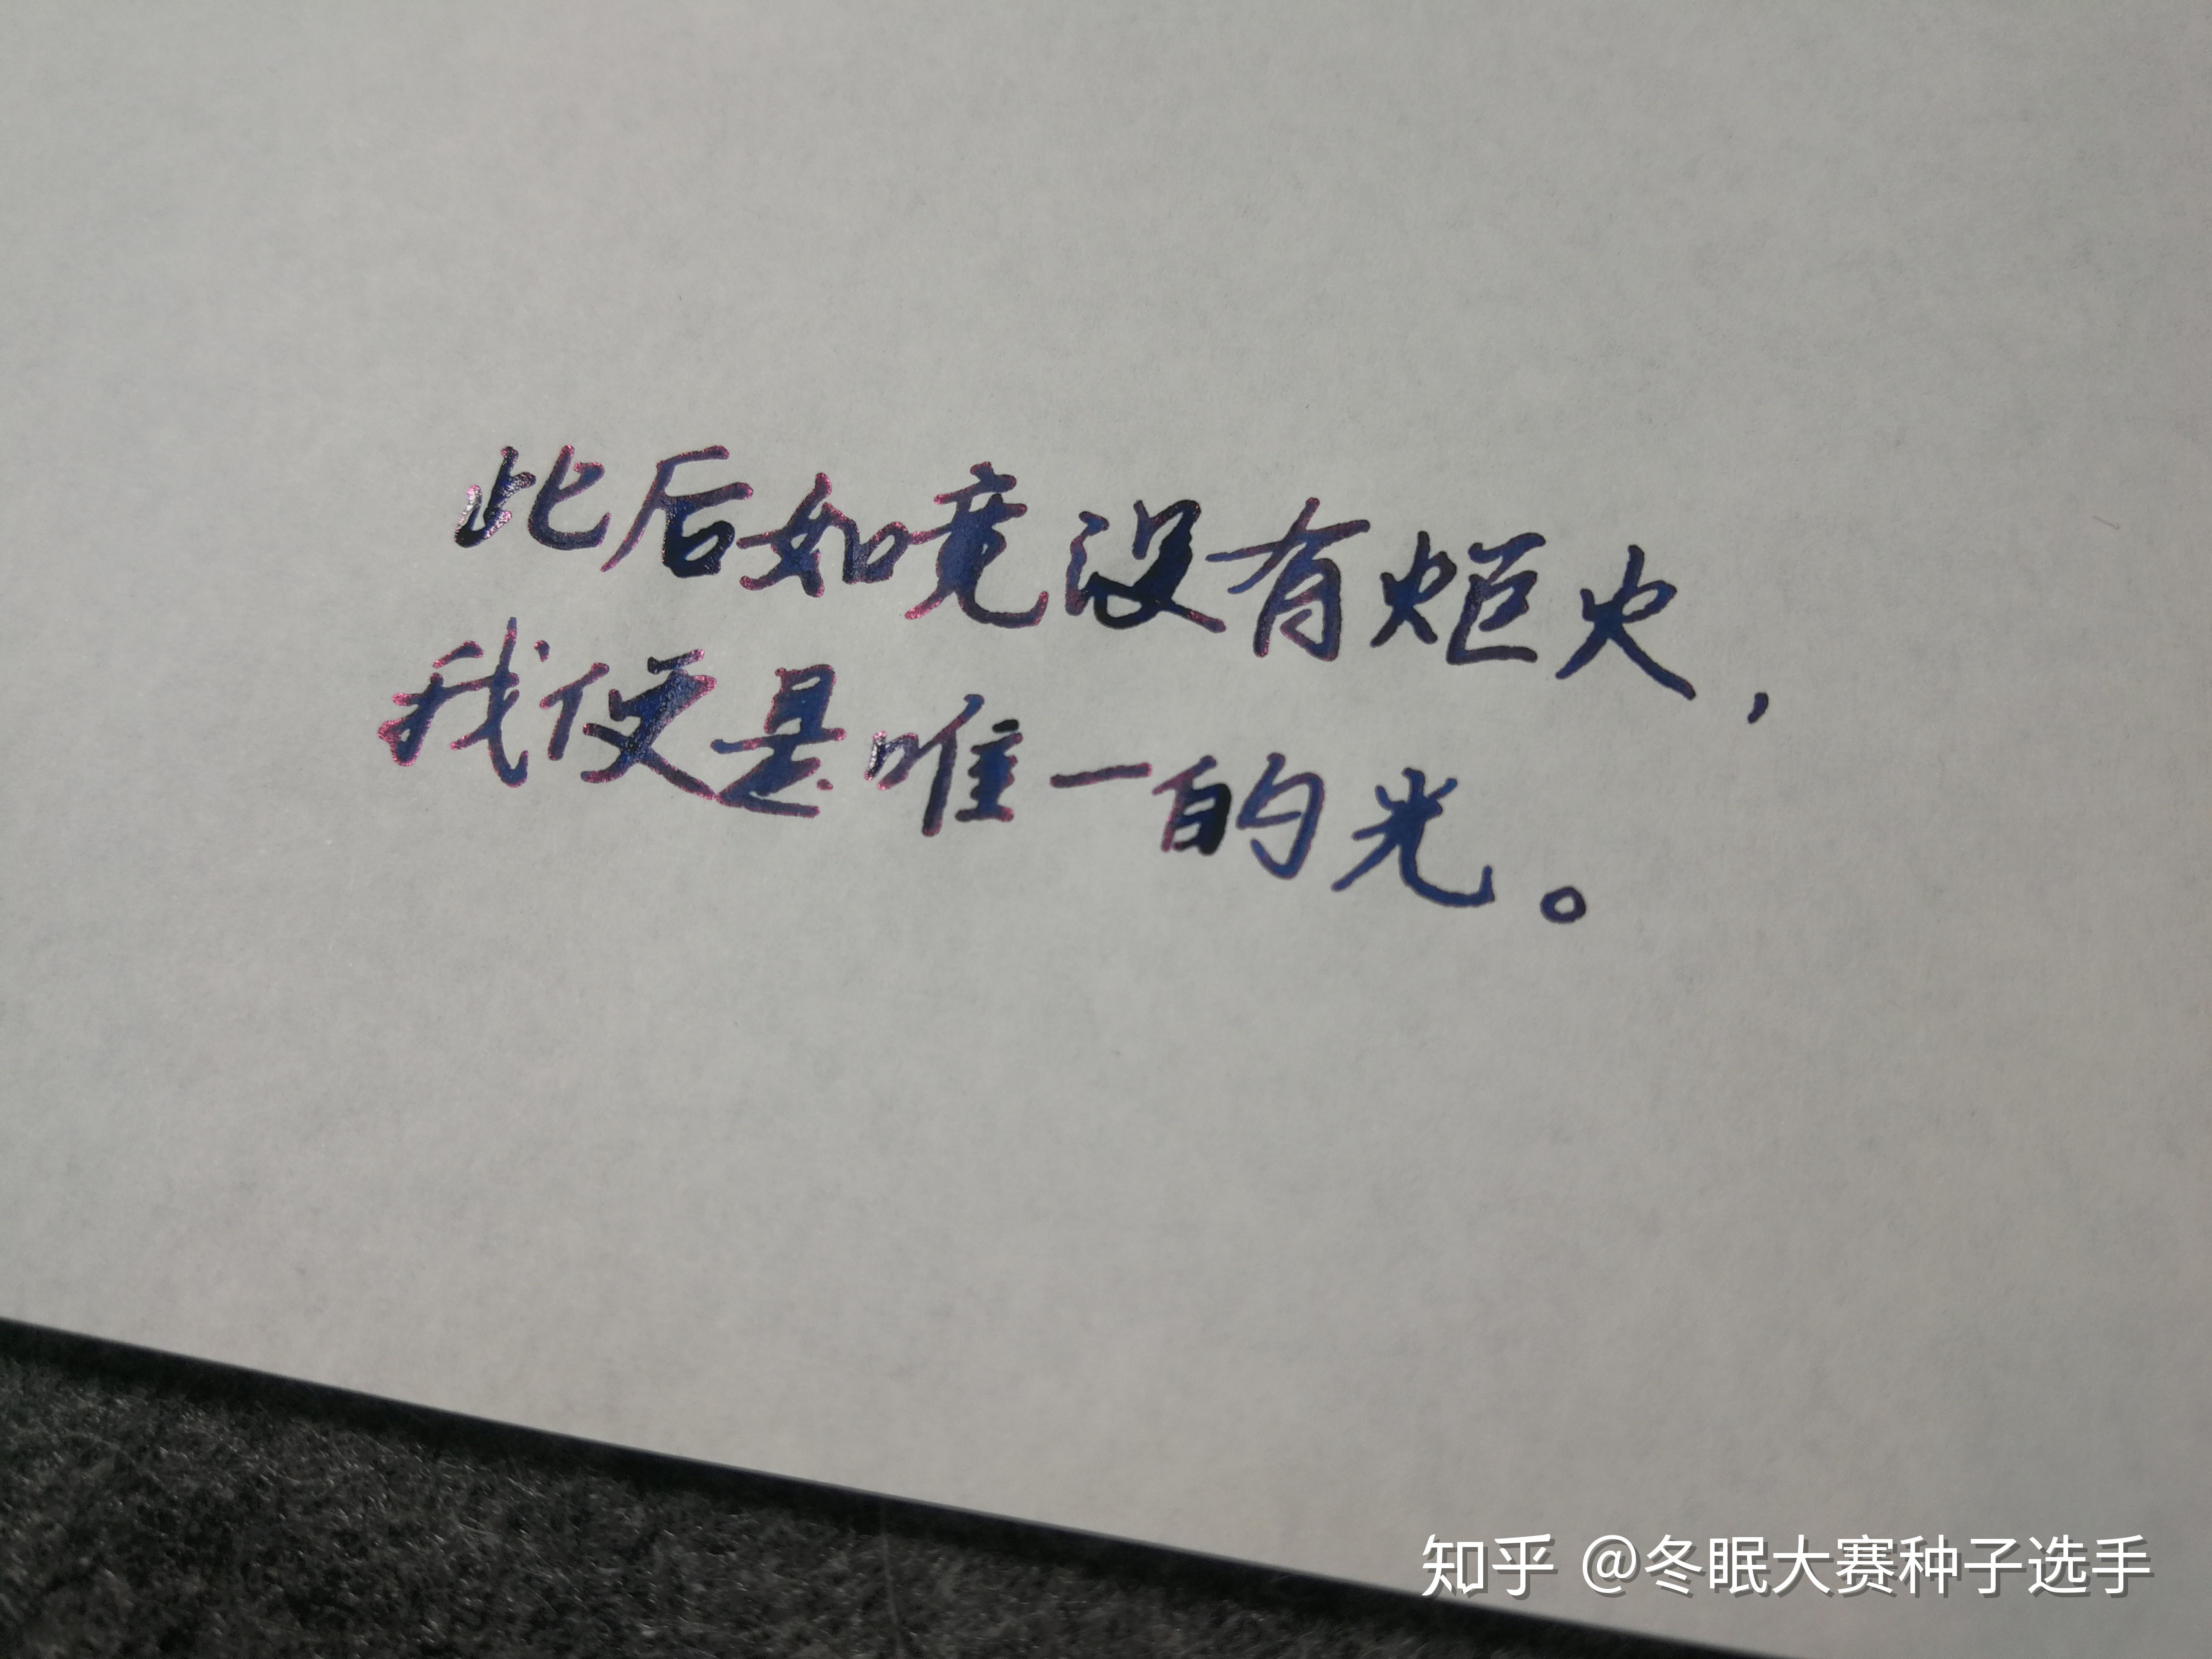 此后如竟没有炬火，
我便是唯一的光。
知乎 @冬眠大赛种子选手